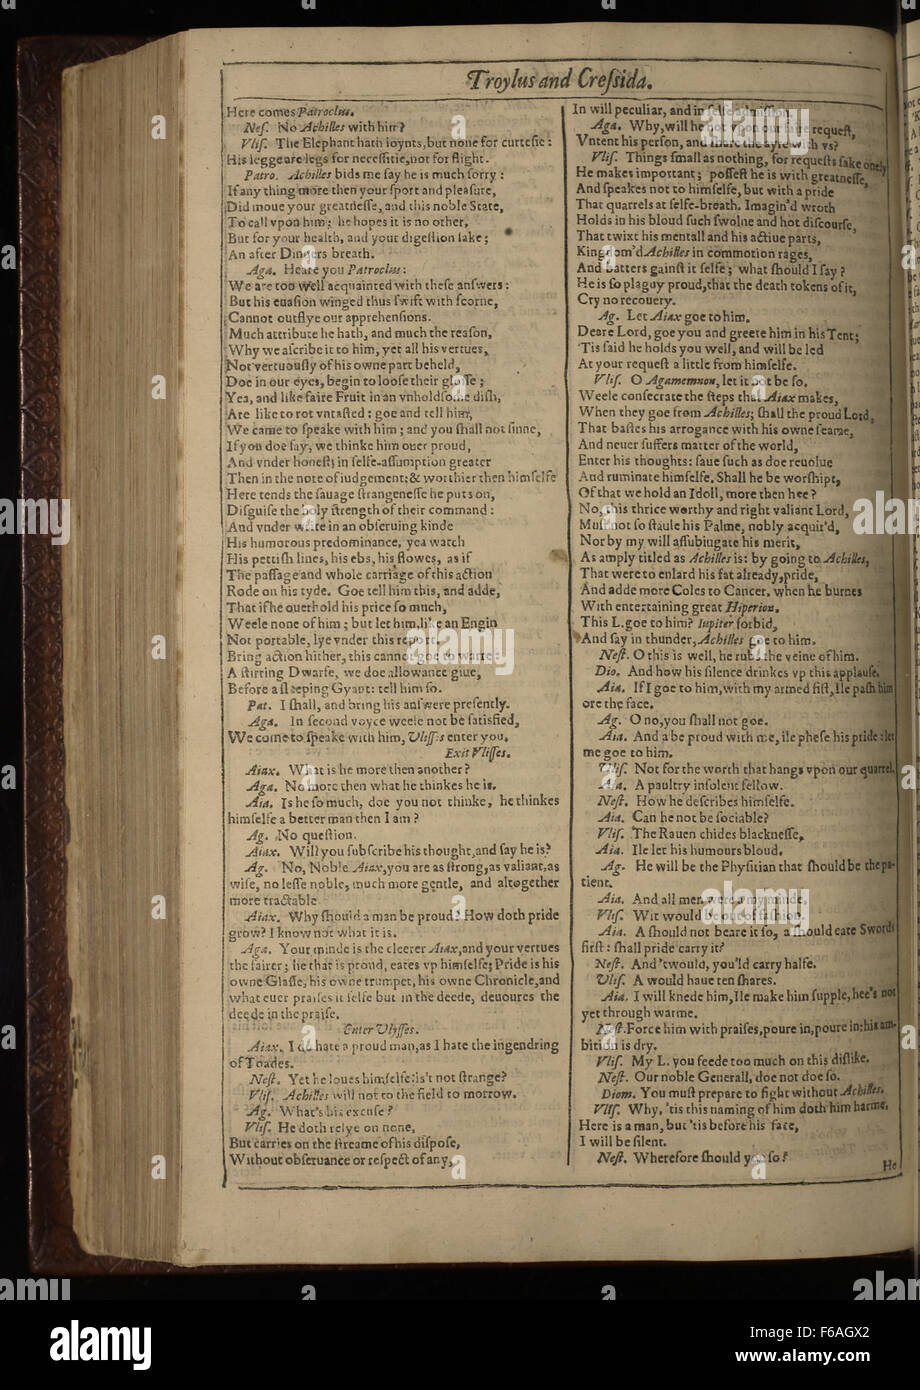 Troylus and Creſsida.
Here comes Patroclus.
Neſ. No Achilles with him?
Vliſ. The Elephant hath ioynts, but none for curteſie:
His legge are legs for neceſſitie, not for flight.
Patro. Achilles bids me ſay he is much ſorry:
If any thing more then your ſport and pleaſure,
Did moue your greatneſſe, and this noble State,
To call vpon him; he hopes it is no other,
But for your health, and your digeſtion ſake;
An after Dinners breath.
Aga. Heare you Patroclus:
We are too well acquainted with theſe anſwers:
But his euaſion winged thus ſwift with ſcorne,
Cannot outflye our apprehenſions.
Much attribute he hath, and much the reaſon,
Why we aſcribe it to him, yet all his vertues,
Not vertuouſly of his owne part beheld,
Doe in our eyes, begin to looſe their gloſſe;
Yea, and like faire Fruit in an vnholdſome diſh,
Are like to rot vntaſted: goe and tell him,
We came to ſpeake with him; and you ſhall not ſinne,
If you doe ſay, we thinke him ouer proud,
And vnder honeſt; in ſelfe-aſſumption greater
Then in the note of iudgement; & worthier then himſelfe
Here tends the ſauage ſtrangeneſſe he puts on,
Diſguiſe the holy ſtrength of their command:
And vnder write in an obſeruing kinde
His humorous predominance, yea watch
His pettiſh lines, his ebs, his flowes, as if
The paſſage and whole carriage of this action
Rode on his tyde. Goe tell him this, and adde,
That if he ouerhold his price ſo much,
Weele none of him; but let him, like an Engin
Not portable, lye vnder this report.
Bring action hither, this cannot goe to warre:
A ſtirring Dwarfe, we doe allowance giue,
Before a ſleeping Gyant: tell him ſo.
Pat. I ſhall, and bring his anſwere preſently.
Aga. In ſecond voyce weele not be ſatisfied,
We come to ſpeake with him, Vliſſes enter you.
Exit Vliſſes.
Aiax. What is he more then another?
Aga. No more then what he thinkes he is.
Aia. Is he ſo much, doe you not thinke, he thinkes
himſelfe a better man then I am?
Ag. No queſtion.
Aiax. Will you ſubſcribe his thought, and ſay he is?
Ag. No, Noble Aiax, you are as ſtrong, as valiant, as
wiſe, no leſſe noble, much more gentle, and altogether
more tractable.
Aiax. Why ſhould a man be proud? How doth pride
grow? I know not what it is.
Aga. Your minde is the cleerer Aiax, and your vertues
the fairer; he that is proud, eates vp himſelfe; Pride is his
owne Glaſſe, his owne trumpet, his owne Chronicle, and
what euer praiſes it ſelfe but in the deede, deuoures the
deede in the praiſe.
Enter Vlyſſes.
Aiax. I do hate a proud man, as I hate the ingendring
of Toades.
Neſt. Yet he loues himſelfe: is't not ſtrange?
Vliſ. Achilles will not to the field to morrow.
Ag. What's his excuſe?
Vliſ. He doth relye on none,
But carries on the ſtreame of his diſpoſe,
Without obſeruance or reſpect of any,
In will peculiar, and in ſelfe admiſſion.
Aga. Why, will he not vpon our faire requeſt,
Vntent his perſon, and ſhare the ayre with vs?
Vliſ. Things ſmall as nothing, for requeſts ſake onely
He makes important; poſſeſt he is with greatneſſe,
And ſpeakes not to himſelfe, but with a pride
That quarrels at ſelfe-breath. Imagin'd wroth
Holds in his bloud ſuch ſwolne and hot diſcourſe,
That twixt his mentall and his actiue parts,
Kingdom'd Achilles in commotion rages,
And batters gainſt it ſelfe; what ſhould I ſay?
He is ſo plaguy proud, that the death tokens of it,
Cry no recouery.
Ag. Let Aiax goe to him.
Deare Lord, goe you and greete him in his Tent;
'Tis ſaid he holds you well, and will be led
At your requeſt a little from himſelfe.
Vliſ. O Agamemnon, let it not be ſo.
Weele conſecrate the ſteps that Aiax makes,
When they goe from Achilles; ſhall the proud Lord,
That baſtes his arrogance with his owne ſeame,
And neuer ſuffers matter of the world,
Enter his thoughts: ſaue ſuch as doe reuolue
And ruminate himſelfe. Shall he be worſhipt,
Of that we hold an Idoll, more then hee?
No, this thrice worthy and right valiant Lord,
Muſt not ſo ſtaule his Palme, nobly acquir'd,
Nor by my will aſſubiugate his merit,
As amply titled as Achilles is: by going to Achilles,
That were to enlard his fat already, pride,
And adde more Coles to Cancer, when he burnes
With entertaining great Hiperion.
This L. goe to him? Iupiter forbid,
And ſay in thunder, Achilles goe to him.
Neſt. O this is well, he rubs the veine of him.
Dio. And how his ſilence drinkes vp this applauſe.
Aia. If I goe to him, with my armed fiſt, Ile paſh him
ore the face.
Ag. O no, you ſhall not goe.
Aia. And a be proud with me, ile pheſe his pride: let
me goe to him.
Vliſ. Not for the worth that hangs vpon our quarrel.
Aia. A paultry inſolent fellow.
Neſt. How he deſcribes himſelfe.
Aia. Can he not be ſociable?
Vliſ. The Rauen chides blackneſſe.
Aia. Ile let his humours bloud.
Ag. He will be the Phyſitian that ſhould be the pa-
tient.
Aia. And all men were a my minde.
Vliſ. Wit would be out of faſhion.
Aia. A ſhould not beare it ſo, a ſhould eate Swords
firſt: ſhall pride carry it?
Neſt. And 'twould, you'ld carry halfe.
Vliſ. A would haue ten ſhares.
Aia. I will knede him, Ile make him ſupple, hee's not
yet through warme.
Neſt. Force him with praiſes, poure in, poure in: his am-
bition is dry.
Vliſ. My L. you feede too much on this diſlike.
Neſt. Our noble Generall, doe not doe ſo.
Diom. You muſt prepare to fight without Achilles.
Vliſ. Why, 'tis this naming of him doth him harme.
Here is a man, but 'tis before his face,
I will be ſilent.
Neſt. Wherefore ſhould you ſo?
He
alamy
Image ID: F6AGX2
www.alamy.com